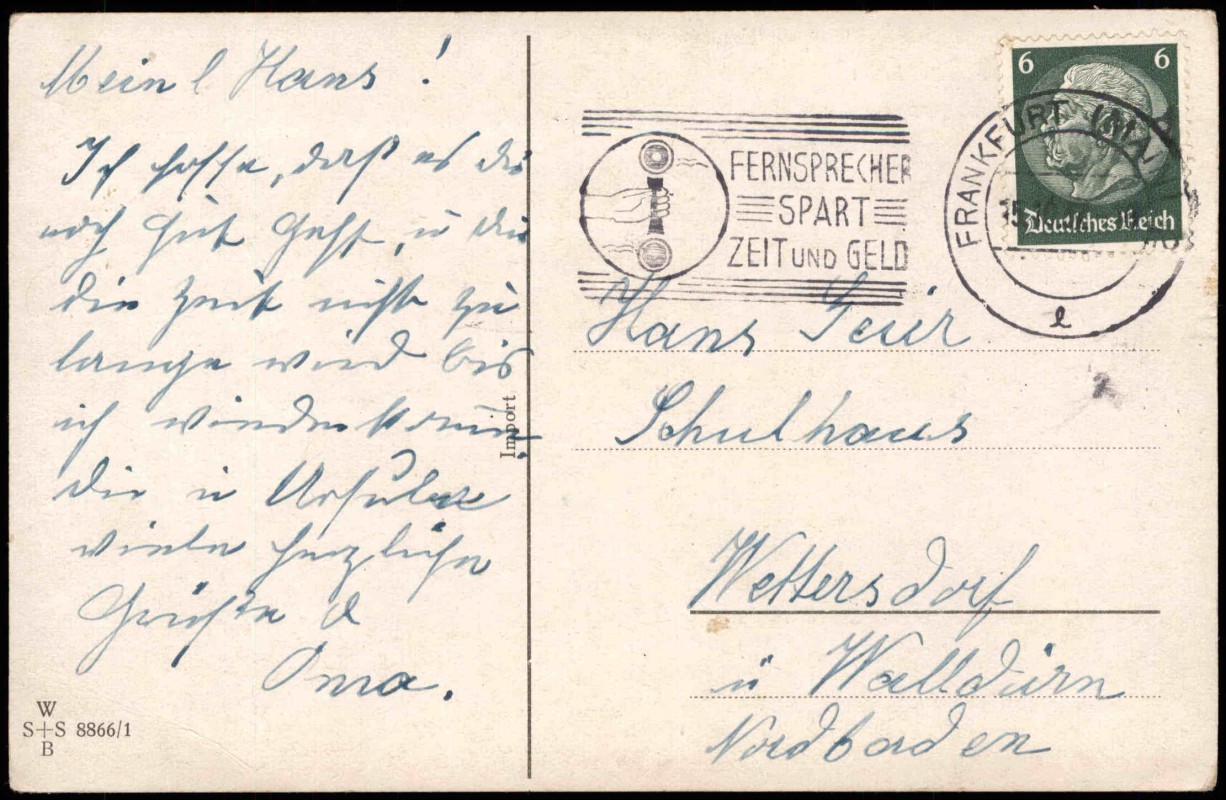 Mein l Hans!
Ich hoffe, daß es dir
noch gut geht, u dir
die Zeit nicht zu
lange wird bis
ich wiederkomm.
Dir u Ursula
viele herzliche
Grüße d
Oma.
W
S+S 8866/1
B
Import
FERNSPRECHER
SPART
ZEIT UND GELD
FRANKFURT (MAIN)
l
6 6
Deutsches Reich
Hans
Schulhaus
Wettersdorf
ü Walldürn
Nordbaden